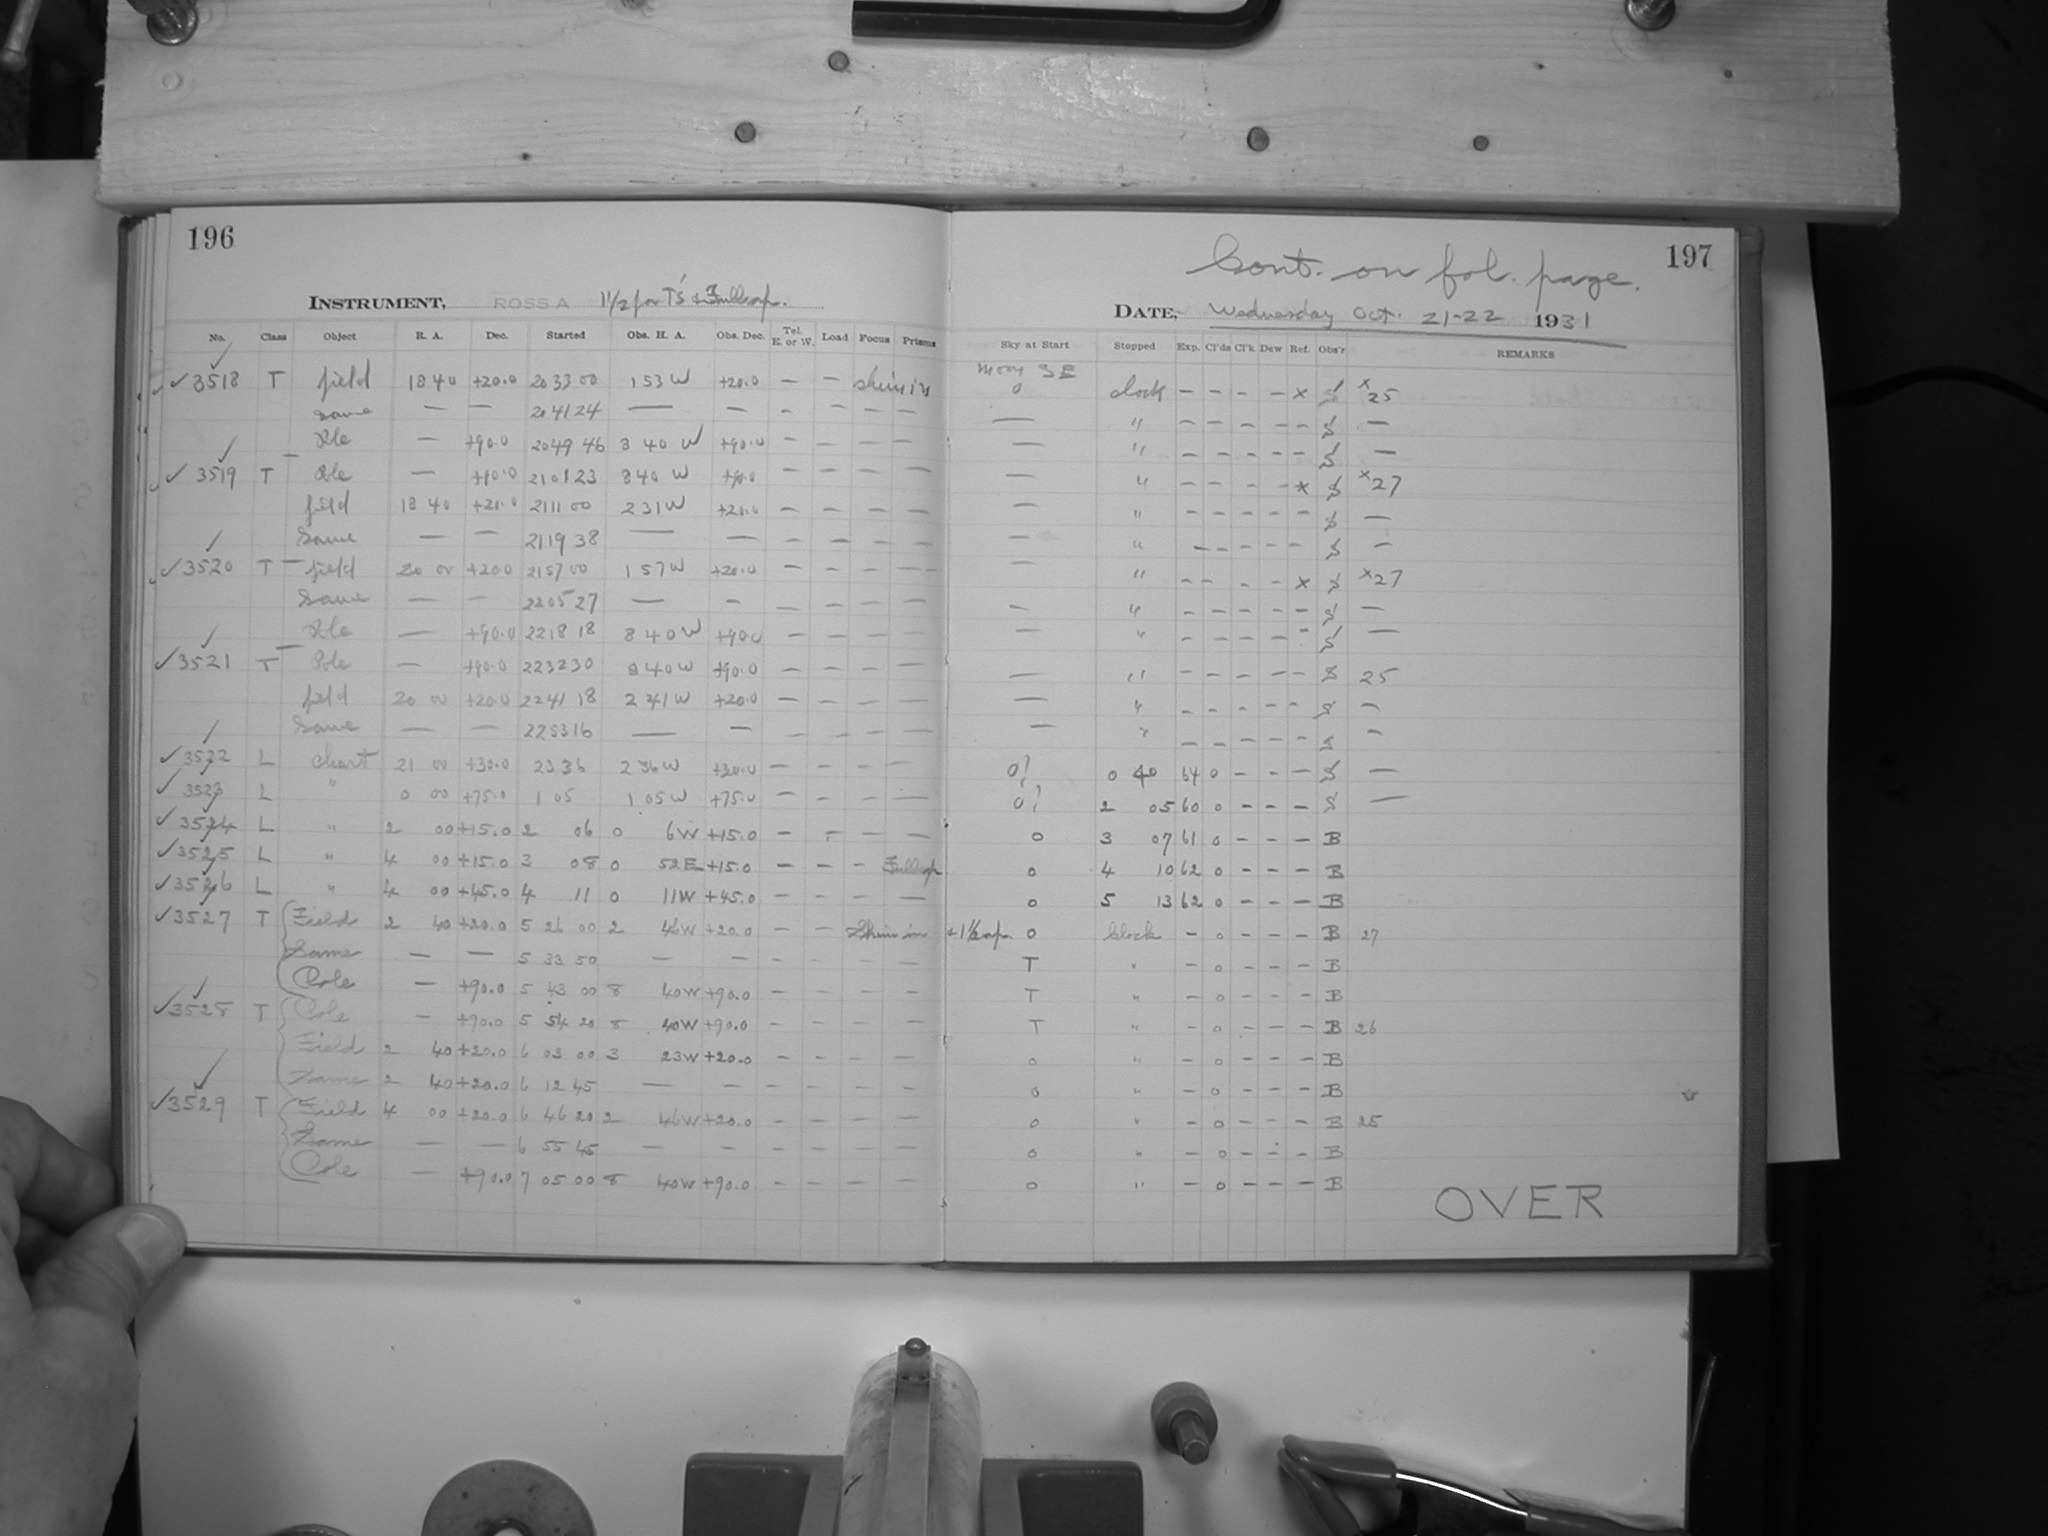 196
INSTRUMENT, ROSS A 1 1/2 for T's & Fullap.
No. Class Object R. A. Dec. Started Obs. H. A. Obs. Dec. Tel. E. or W. Load Focus Prisms
✓3518 T field 18 40 +20.0 20 33 00 1 53 W +20.0 — — shim in
Same — — 20 41 24 — — — — — —
Pole — +90.0 20 49 46 8 40 W +90.0 — — — —
✓3519 T Pole — +90.0 21 01 23 8 40 W +90.0 — — — —
field 18 40 +20.0 21 11 00 2 31 W +20.0 — — — —
Same — — 21 19 38 — — — — — —
✓3520 T field 20 00 +20.0 21 57 00 1 57 W +20.0 — — — —
Same — — 22 05 27 — — — — — —
Pole — +90.0 22 18 18 8 40 W +90.0 — — — —
✓3521 T Pole — +90.0 22 32 30 8 40 W +90.0 — — — —
field 20 00 +20.0 22 41 18 2 41 W +20.0 — — — —
Same — — 22 53 16 — — — — — —
✓3522 L chart 21 00 +30.0 23 36 2 36 W +30.0 — — — —
✓3523 L " 0 00 +75.0 1 05 1 05 W +75.0 — — — —
✓3524 L " 2 00 +15.0 2 06 0 6W +15.0 — — — —
✓3525 L " 4 00 +15.0 3 08 0 52E +15.0 — — — Fullap
✓3526 L " 4 00 +45.0 4 11 0 11W +45.0 — — — —
✓3527 T Field 2 40 +20.0 5 26 00 2 46W +20.0 — — Shim in + 1 1/2 ap.
Same — — 5 33 50 — — — — — —
Pole — +90.0 5 43 00 8 40W +90.0 — — — —
✓3528 T Pole — +90.0 5 54 20 8 40W +90.0 — — — —
Field 2 40 +20.0 6 03 00 3 23W +20.0 — — — —
Same 2 40 +20.0 6 12 45 — — — — — —
✓3529 T Field 4 00 +20.0 6 46 20 2 46W +20.0 — — — —
Same — — 6 55 45 — — — — — —
Pole — +90.0 7 05 00 8 40W +90.0 — — — —
197
Cont. on fol. page.
DATE, Wednesday Oct. 21-22 1931
Sky at Start Stopped Exp. Cl'ds Cl'k Dew Ref. Obs'r REMARKS
Moon SE
0 clock — — — — x S x25
— " — — — — — S —
— " — — — — — S —
— " — — — — x S x27
— " — — — — — S —
— " — — — — — S —
— " — — — — x S x27
— " — — — — — S —
— " — — — — — S —
— " — — — — — S 25
— " — — — — — S —
— " — — — — — S —
0? 0 40 64 0 — — — S —
0? 2 05 60 0 — — — S —
0 3 07 61 0 — — — B
0 4 10 62 0 — — — B
0 5 13 62 0 — — — B
0 clock — 0 — — — B 27
T " — 0 — — — B
T " — 0 — — — B
T " — 0 — — — B 26
0 " — 0 — — — B
0 " — 0 — — — B
0 " — 0 — — — B 25
0 " — 0 — — — B
0 " — 0 — — — B
OVER